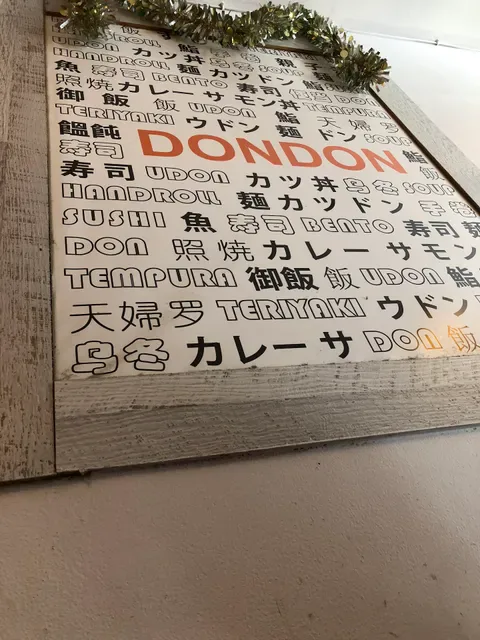 HANDROLL 飯
UDON カツ丼 鮨 親子
HANDROLL 麺 カツドン SOUP
魚 寿司 BENTO 寿司 麺
照焼 カレーサモン丼 DON
御飯 飯 UDON 鮨 TEMPURA
TERIYAKI ウドン 麺 天婦罗
饂飩 DONDON ドン SOUP
寿司 鮨
寿司 UDON カツ丼 乌冬 SOUP
HANDROLL 麺 カツドン 手
SUSHI 魚 寿司 BENTO 寿司 麺
DON 照焼 カレーサモン
TEMPURA 御飯 飯 UDON 鮨
天婦罗 TERIYAKI ウドン
乌冬 カレーサ DON 飯